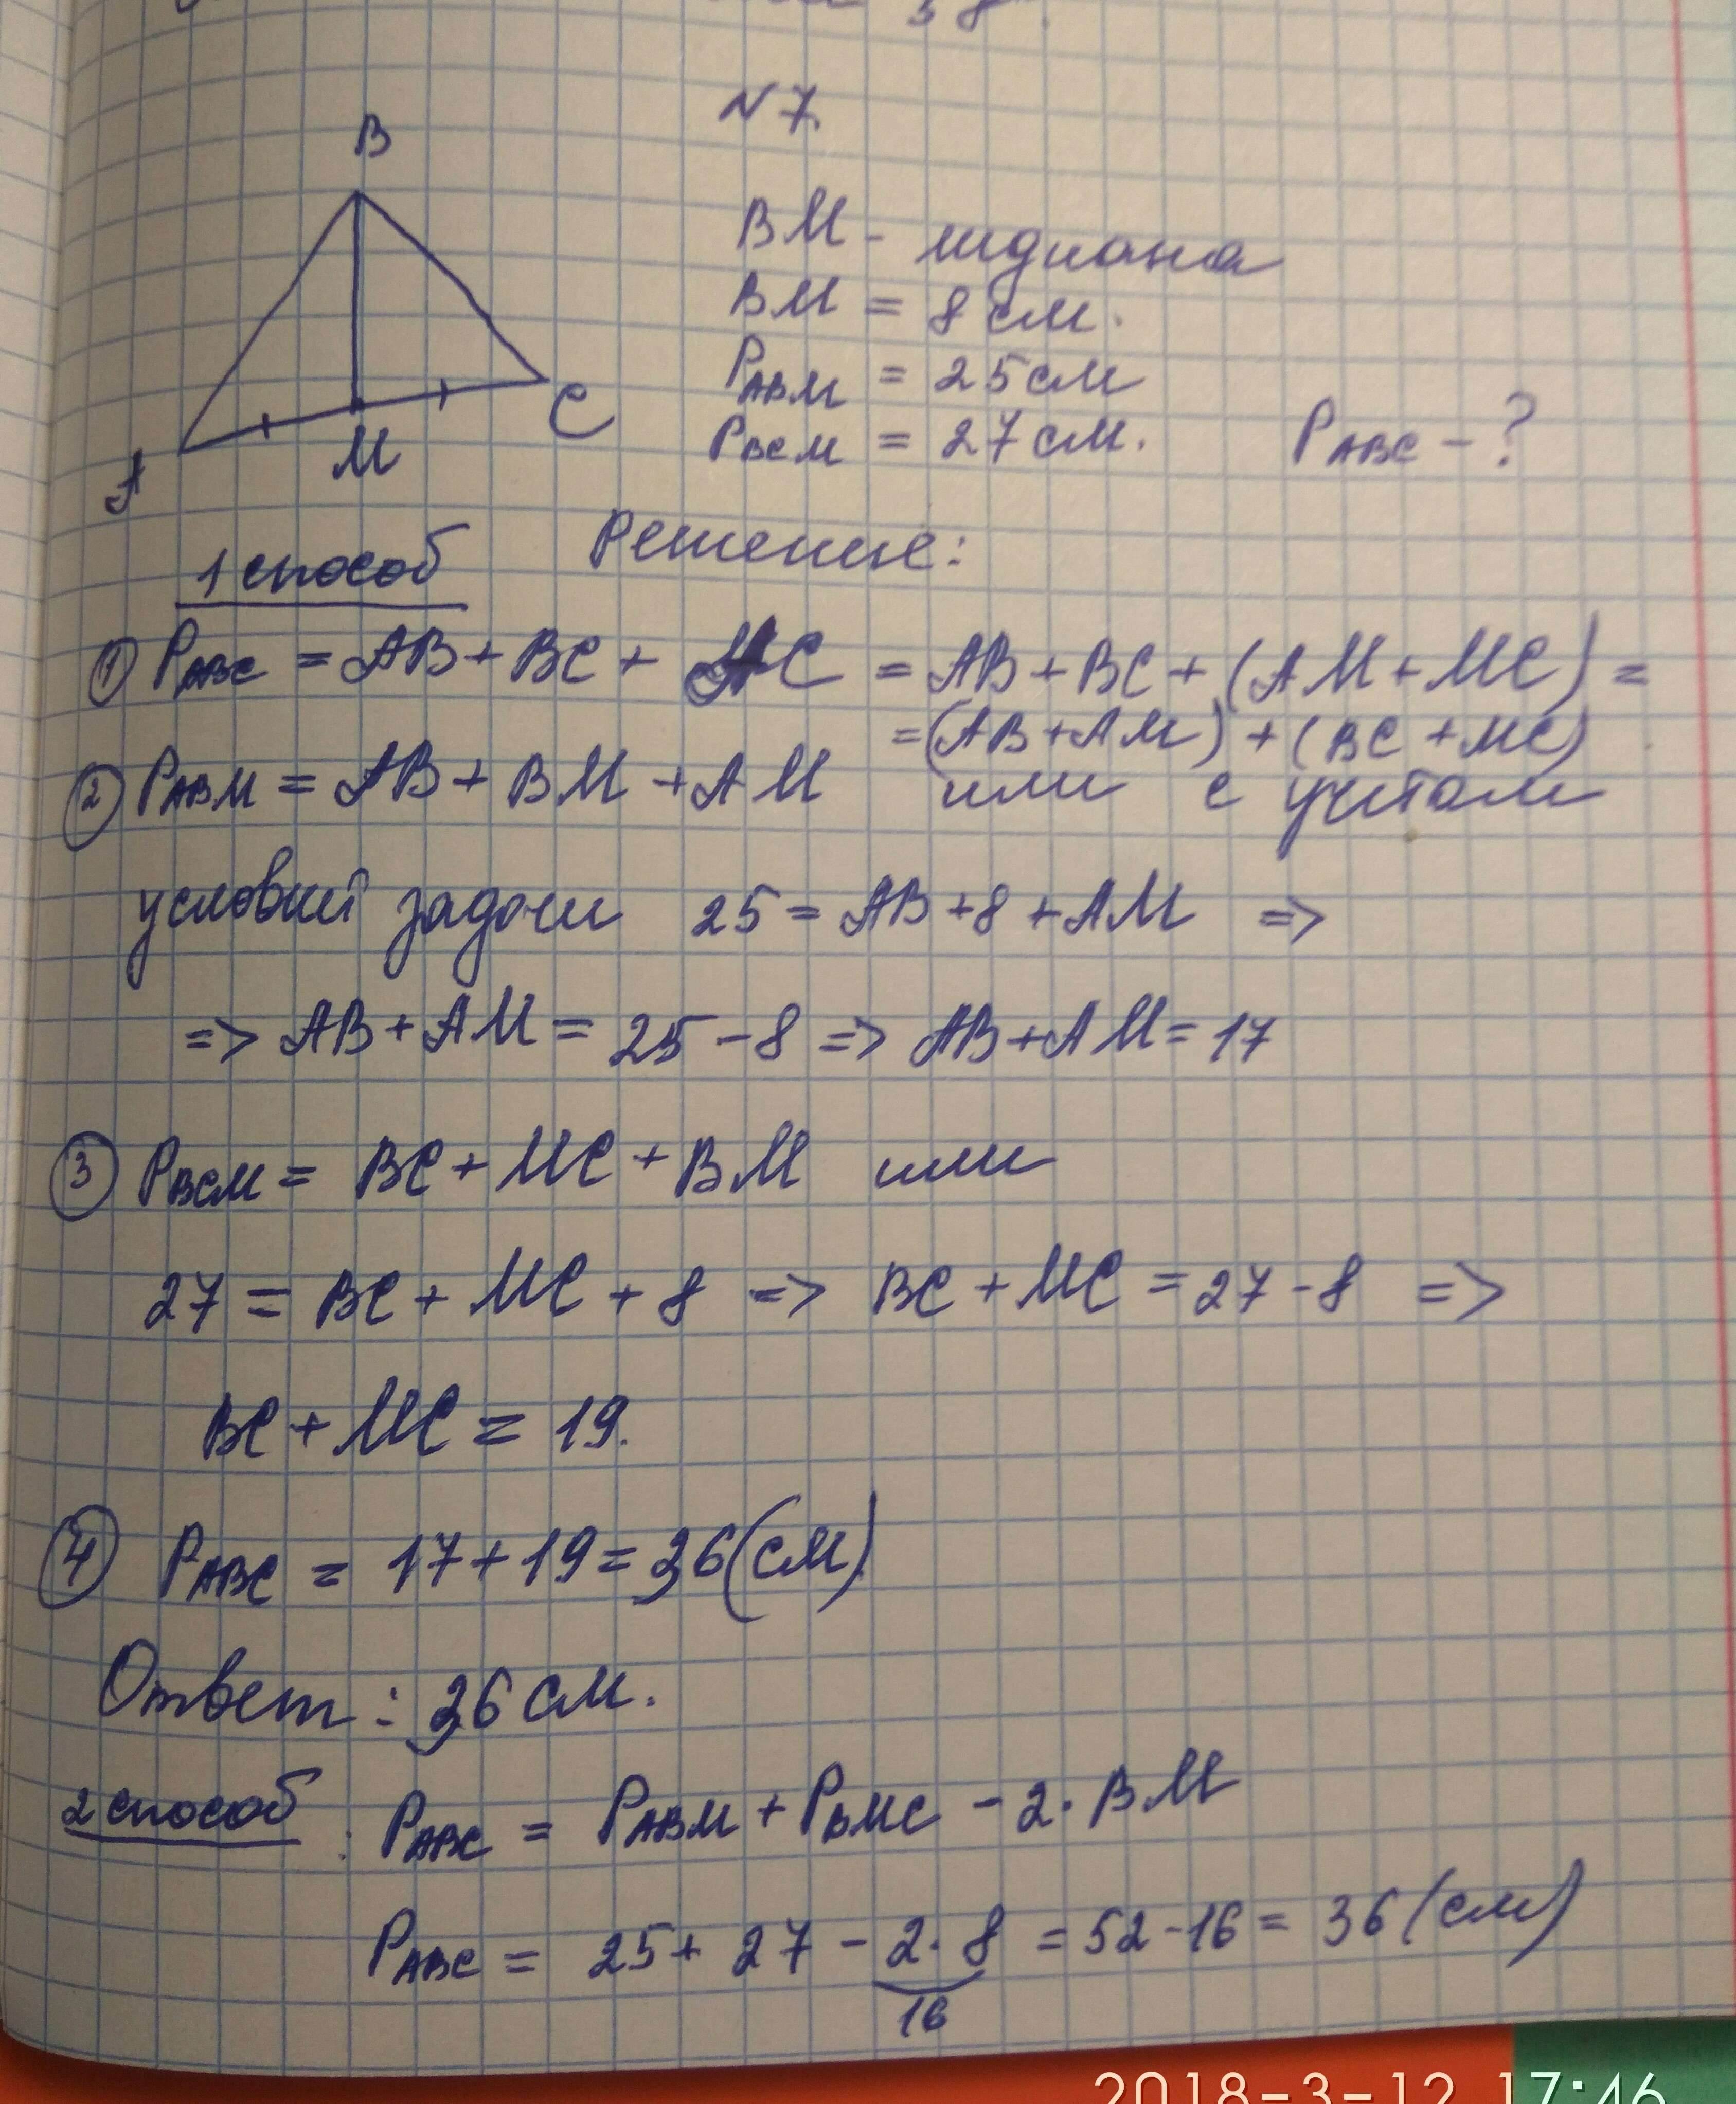 N 7.
B
A
M
C
BM - медиана
BM = 8 см.
PABM = 25 см
PBCM = 27 см. PABC - ?
Решение:
1 способ
① PABC = AB + BC + AC = AB + BC + (AM + MC) =
= (AB + AM) + (BC + MC)
② PABM = AB + BM + AM или с учётом
условий задачи 25 = AB + 8 + AM =>
=> AB + AM = 25 - 8 => AB + AM = 17
③ PBCM = BC + MC + BM или
27 = BC + MC + 8 => BC + MC = 27 - 8 =>
BC + MC = 19.
④ PABC = 17 + 19 = 36 (см)
Ответ: 36 см.
2 способ : PABC = PABM + PBMC - 2 · BM
PABC = 25 + 27 - 2 · 8 = 52 - 16 = 36 (см)
16
2018-3-12 17:46